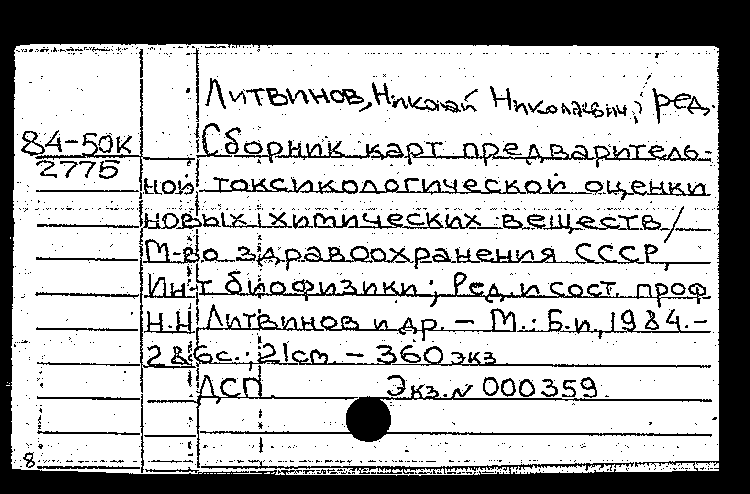 Литвинов, Николай Николаевич, ред.
84-50к
2775
Сборник карт предваритель-
ной токсикологической оценки
новых химических веществ /
М-во здравоохранения СССР,
Ин-т биофизики; Ред. и сост. проф
Н.Н Литвинов и др. – М.: Б.и., 1984. –
286с.; 21см. – 360 экз
ДСП. Экз. N 000359.
8